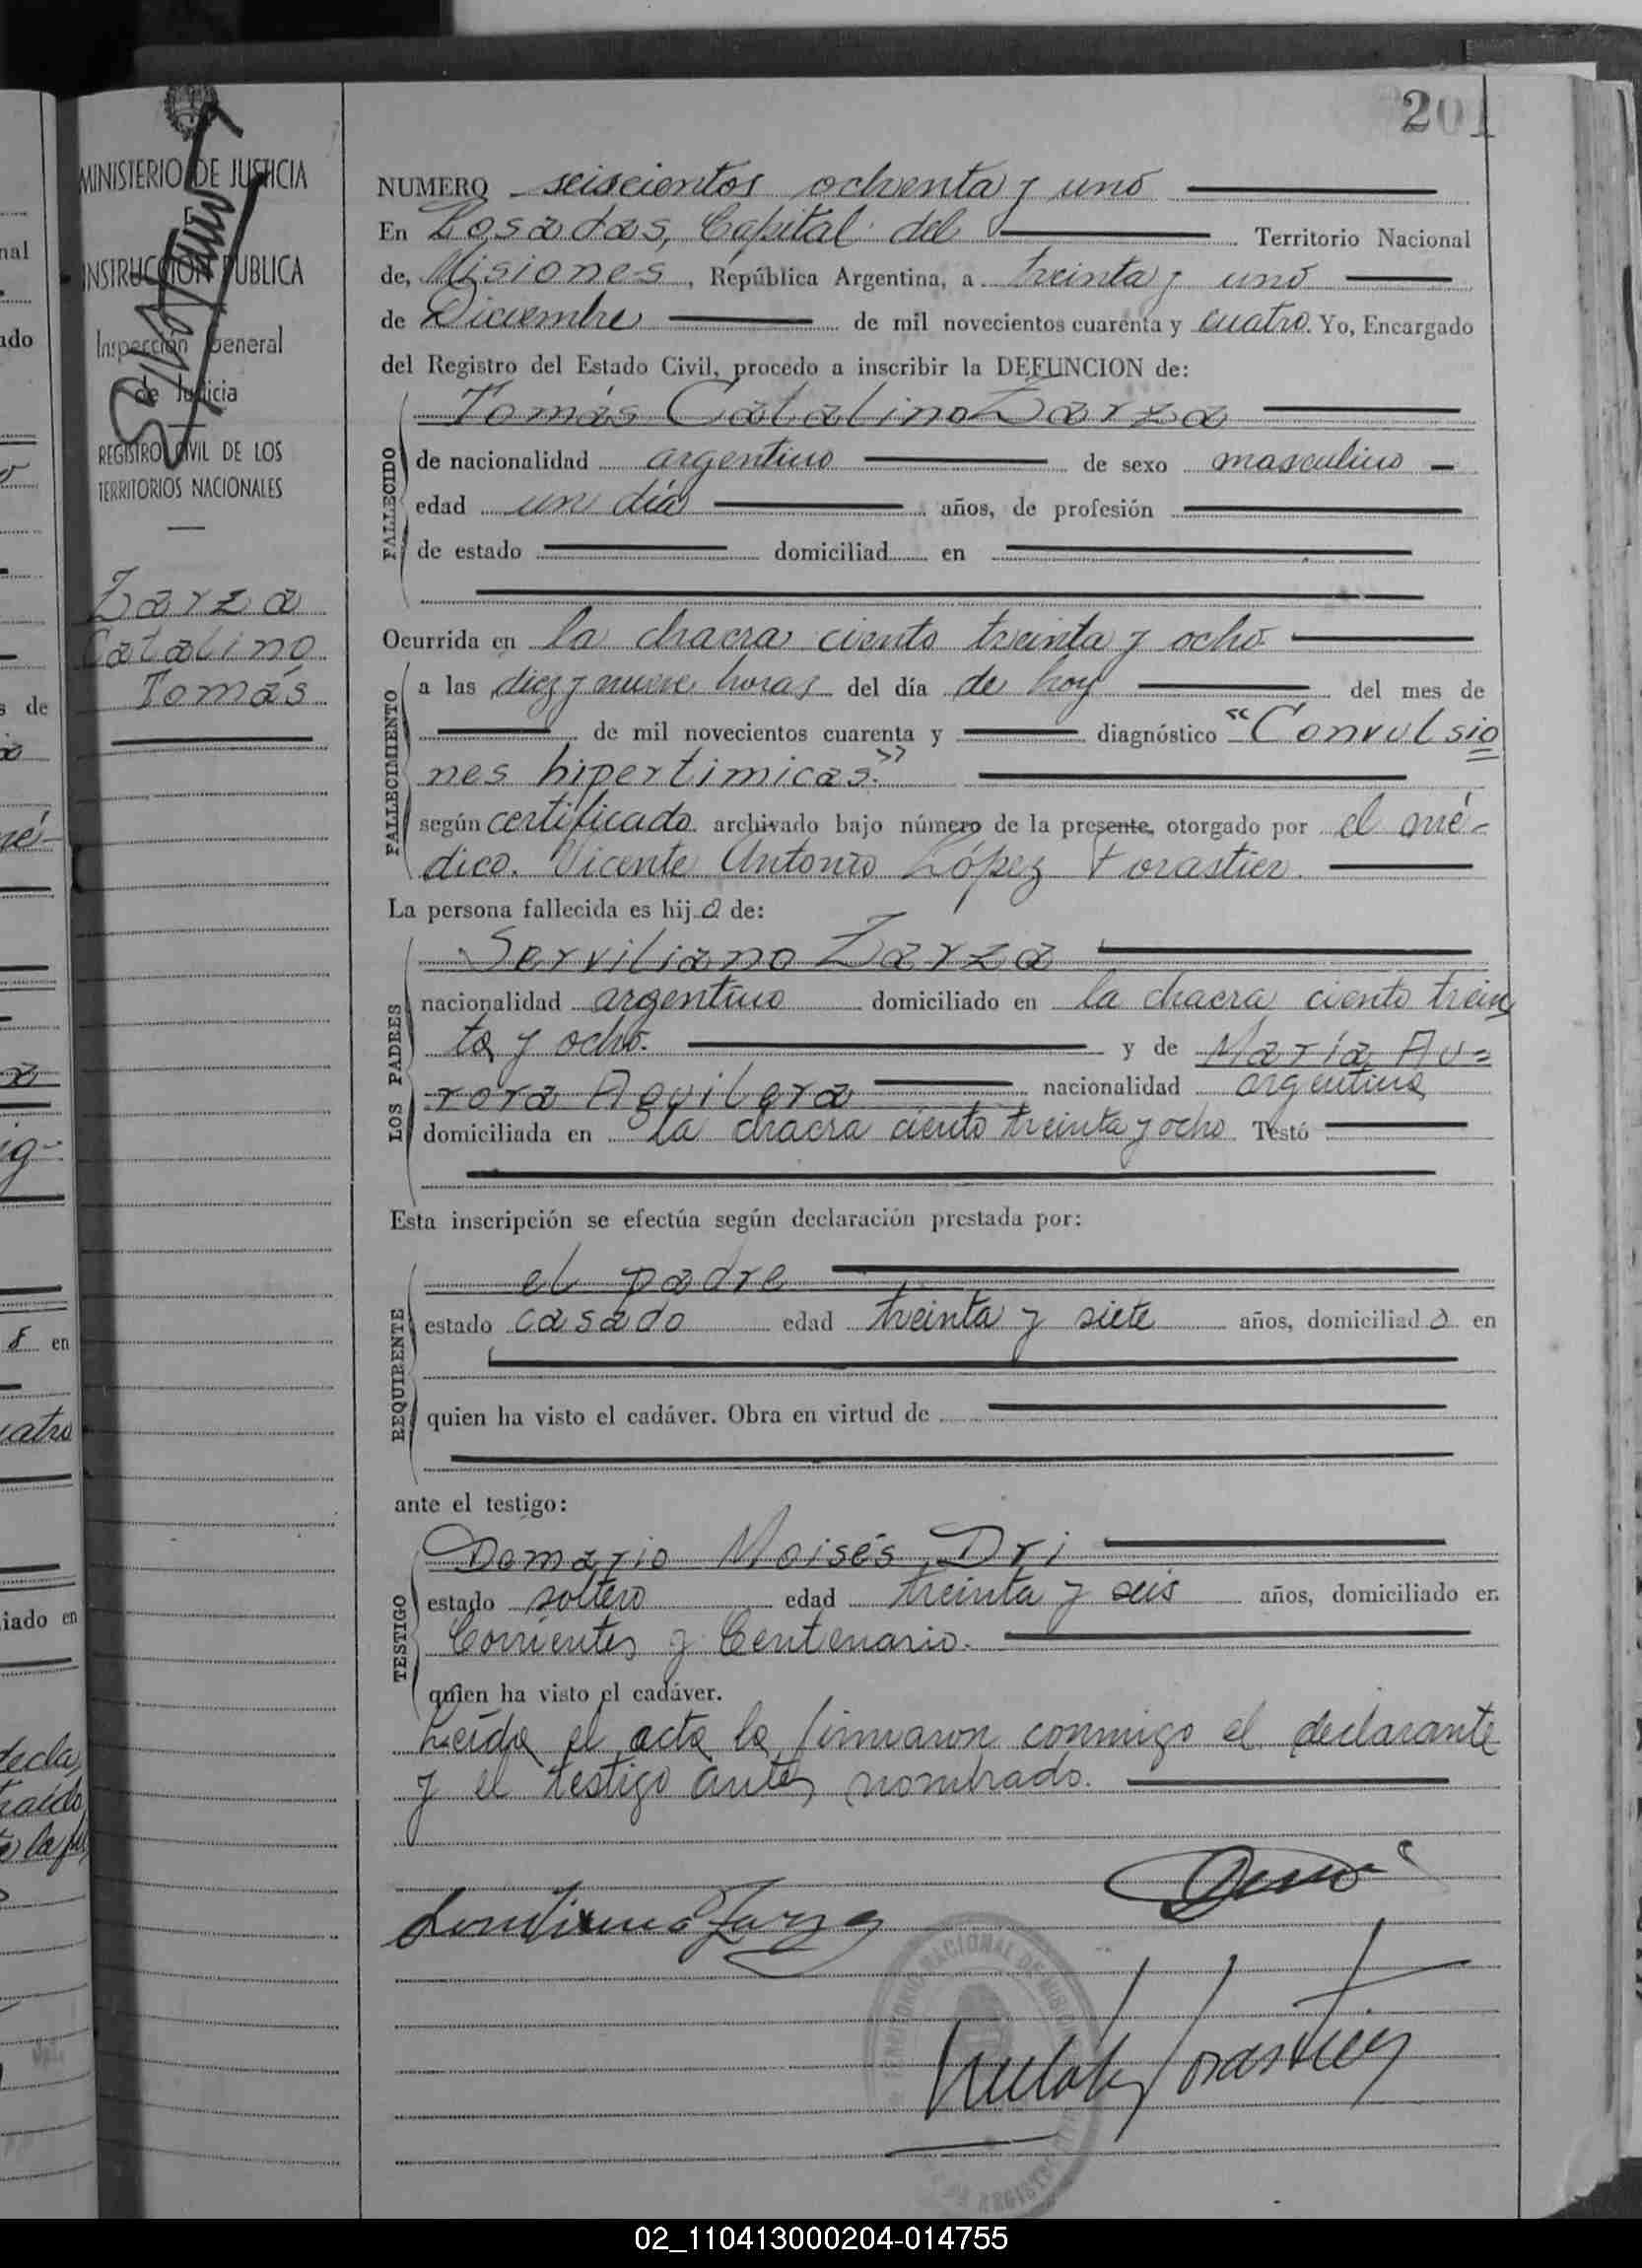 201
MINISTERIO DE JUSTICIA
E
INSTRUCCION PUBLICA
Inspección General
de Justicia
REGISTRO CIVIL DE LOS
TERRITORIOS NACIONALES
Zarza
Catalino
Tomás
NUMERO seiscientos ochenta y uno
En Posadas, Capital del Territorio Nacional
de, Misiones, República Argentina, a treinta y uno
de Diciembre de mil novecientos cuarenta y cuatro. Yo, Encargado
del Registro del Estado Civil, procedo a inscribir la DEFUNCION de:
FALLECIDO
Tomás Catalino Zarza
de nacionalidad argentino de sexo masculino
edad un día años, de profesión
de estado domiciliad en
Ocurrida en la chacra ciento treinta y ocho
FALLECIMIENTO
a las diez y nueve horas del día de hoy del mes de
de mil novecientos cuarenta y diagnóstico "Convulsio
nes hipertimicas."
según certificado archivado bajo número de la presente, otorgado por el mé-
dico. Vicente Antonio López Forastier.
La persona fallecida es hijo de:
LOS PADRES
Serviliano Zarza
nacionalidad argentino domiciliado en la chacra ciento trein
ta y ocho. y de María Au=
rora Aguilera nacionalidad argentina
domiciliada en la chacra ciento treinta y ocho Testó
Esta inscripción se efectúa según declaración prestada por:
REQUIRENTE
el padre
estado casado edad treinta y siete años, domiciliado en
quien ha visto el cadáver. Obra en virtud de
ante el testigo:
TESTIGO
Demario Moisés Dri
estado soltero edad treinta y seis años, domiciliado en
Corrientes y Centenario.
quien ha visto el cadáver.
Leída el acta la firmaron conmigo el declarante
y el testigo antes nombrado.
02_110413000204-014755